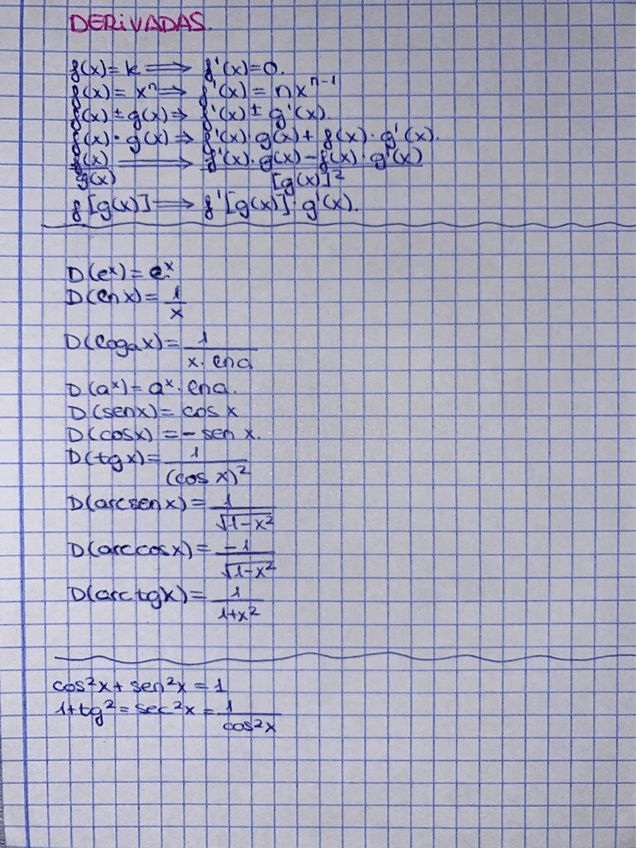 DERIVADAS.
f(x)= k ⟹ f'(x)=0.
f(x)= xⁿ ⟹ f'(x)= nxⁿ⁻¹
f(x) ± g(x) ⟹ f'(x) ± g'(x).
f(x) · g(x) ⟹ f'(x) · g(x) + f(x) · g'(x).
f(x)/g(x) ⟶ f'(x) · g(x) - f(x) · g'(x)/[g(x)]²
f [g(x)] ⟹ f' [g(x)] · g'(x).
D(eˣ)= eˣ
D(ln x)= 1/x
D(logₐx)= 1/x · lna
D(aˣ)= aˣ · lna.
D(senx)= cos x
D(cosx) = - sen x.
D(tgx)= 1/(cos x)²
D(arcsenx)= 1/√1-x²
D(arccosx)= -1/√1-x²
D(arctgx)= 1/1+x²
cos²x + sen²x = 1
1+tg² = sec²x = 1/cos²x